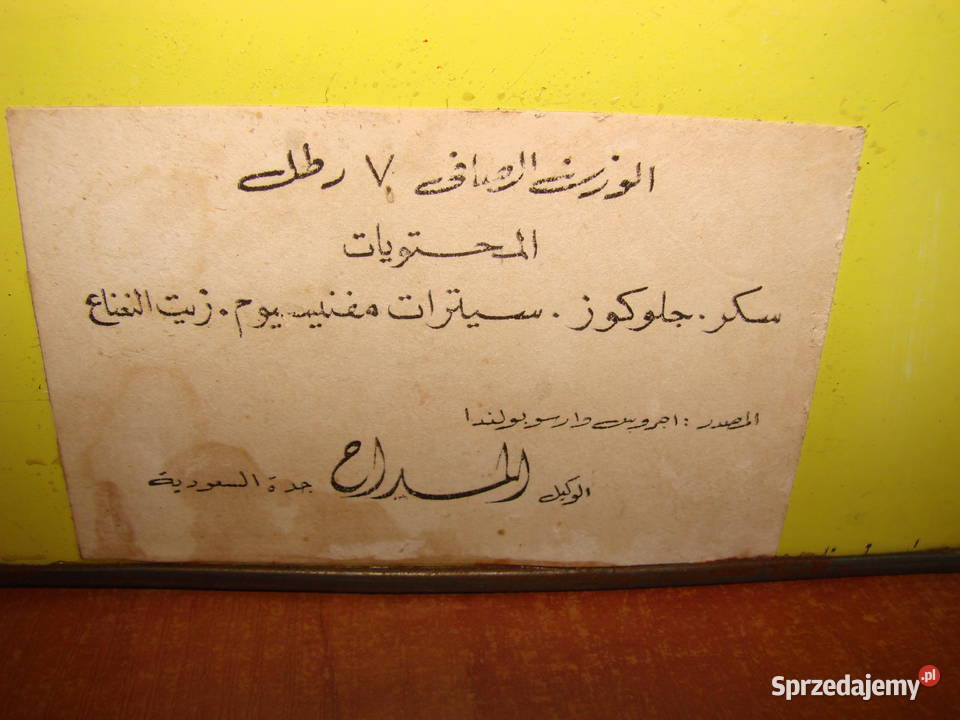 الوزن الصافى ٧ رطل
المحتويات
سكر . جلوكوز . سيترات مغنيسيوم . زيت النعناع
المصدر : اجروس وارسو بولندا
الوكيل المداح جدة السعودية
Sprzedajemy.pl